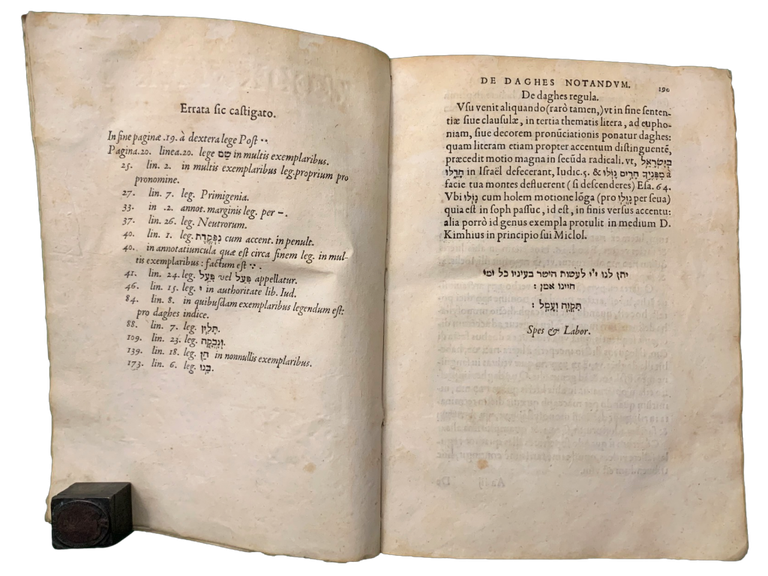 Errata sic castigato.
In fine paginæ .19. à dextera lege Post
Pagina.20. linea.20. lege שָׁם in multis exemplaribus.
25. lin. 2. in multis exemplaribus leg. proprium pro
pronomine.
27. lin. 7. leg. Primigenia.
33. in .2. annot. marginis leg. per –.
37. lin. 26. leg. Neutrorum.
40. lin. 1. leg. cum accent. in penult.
40. in annotatiuncula quæ est circa finem leg. in mul-
tis exemplaribus: factum est
41. lin. 24. leg. פָּעֵל vel פָּעַל appellatur.
46. lin. 15. leg. י in authoritate lib. Iud.
84. lin. 8. in quibusdam exemplaribus legendum est:
pro daghes indice.
88. lin. 7. leg.
109. lin. 23. leg.
139. lin. 18. leg. הֵן in nonnullis exemplaribus.
173. lin. 6. leg. בְּנוּ.
DE DAGHES NOTANDVM. 190
De daghes regula.
Vsu venit aliquando (rarò tamen,) vt in fine senten-
tiæ siue clausulæ, in tertia thematis litera, ad eupho-
niam, siue decorem pronūciationis ponatur daghes:
quam literam etiam propter accentum distinguentē,
præcedit motio magna in secūda radicali. vt,
in Israël defecerant, Iudic.5. & à
facie tua montes defluerent (si descenderes) Esa. 64.
Vbi cum holem motione lōga (pro per seua)
quia est in soph passuc, id est, in finis versus accentu:
alia porrò id genus exempla protulit in medium D.
Kimhius in principio sui Miclol.
יתן לנו י״י לעשות הישר בעיניו כל ימי
חיינו אמן :
תִּקְוָה וְעָמָל :
Spes & Labor.